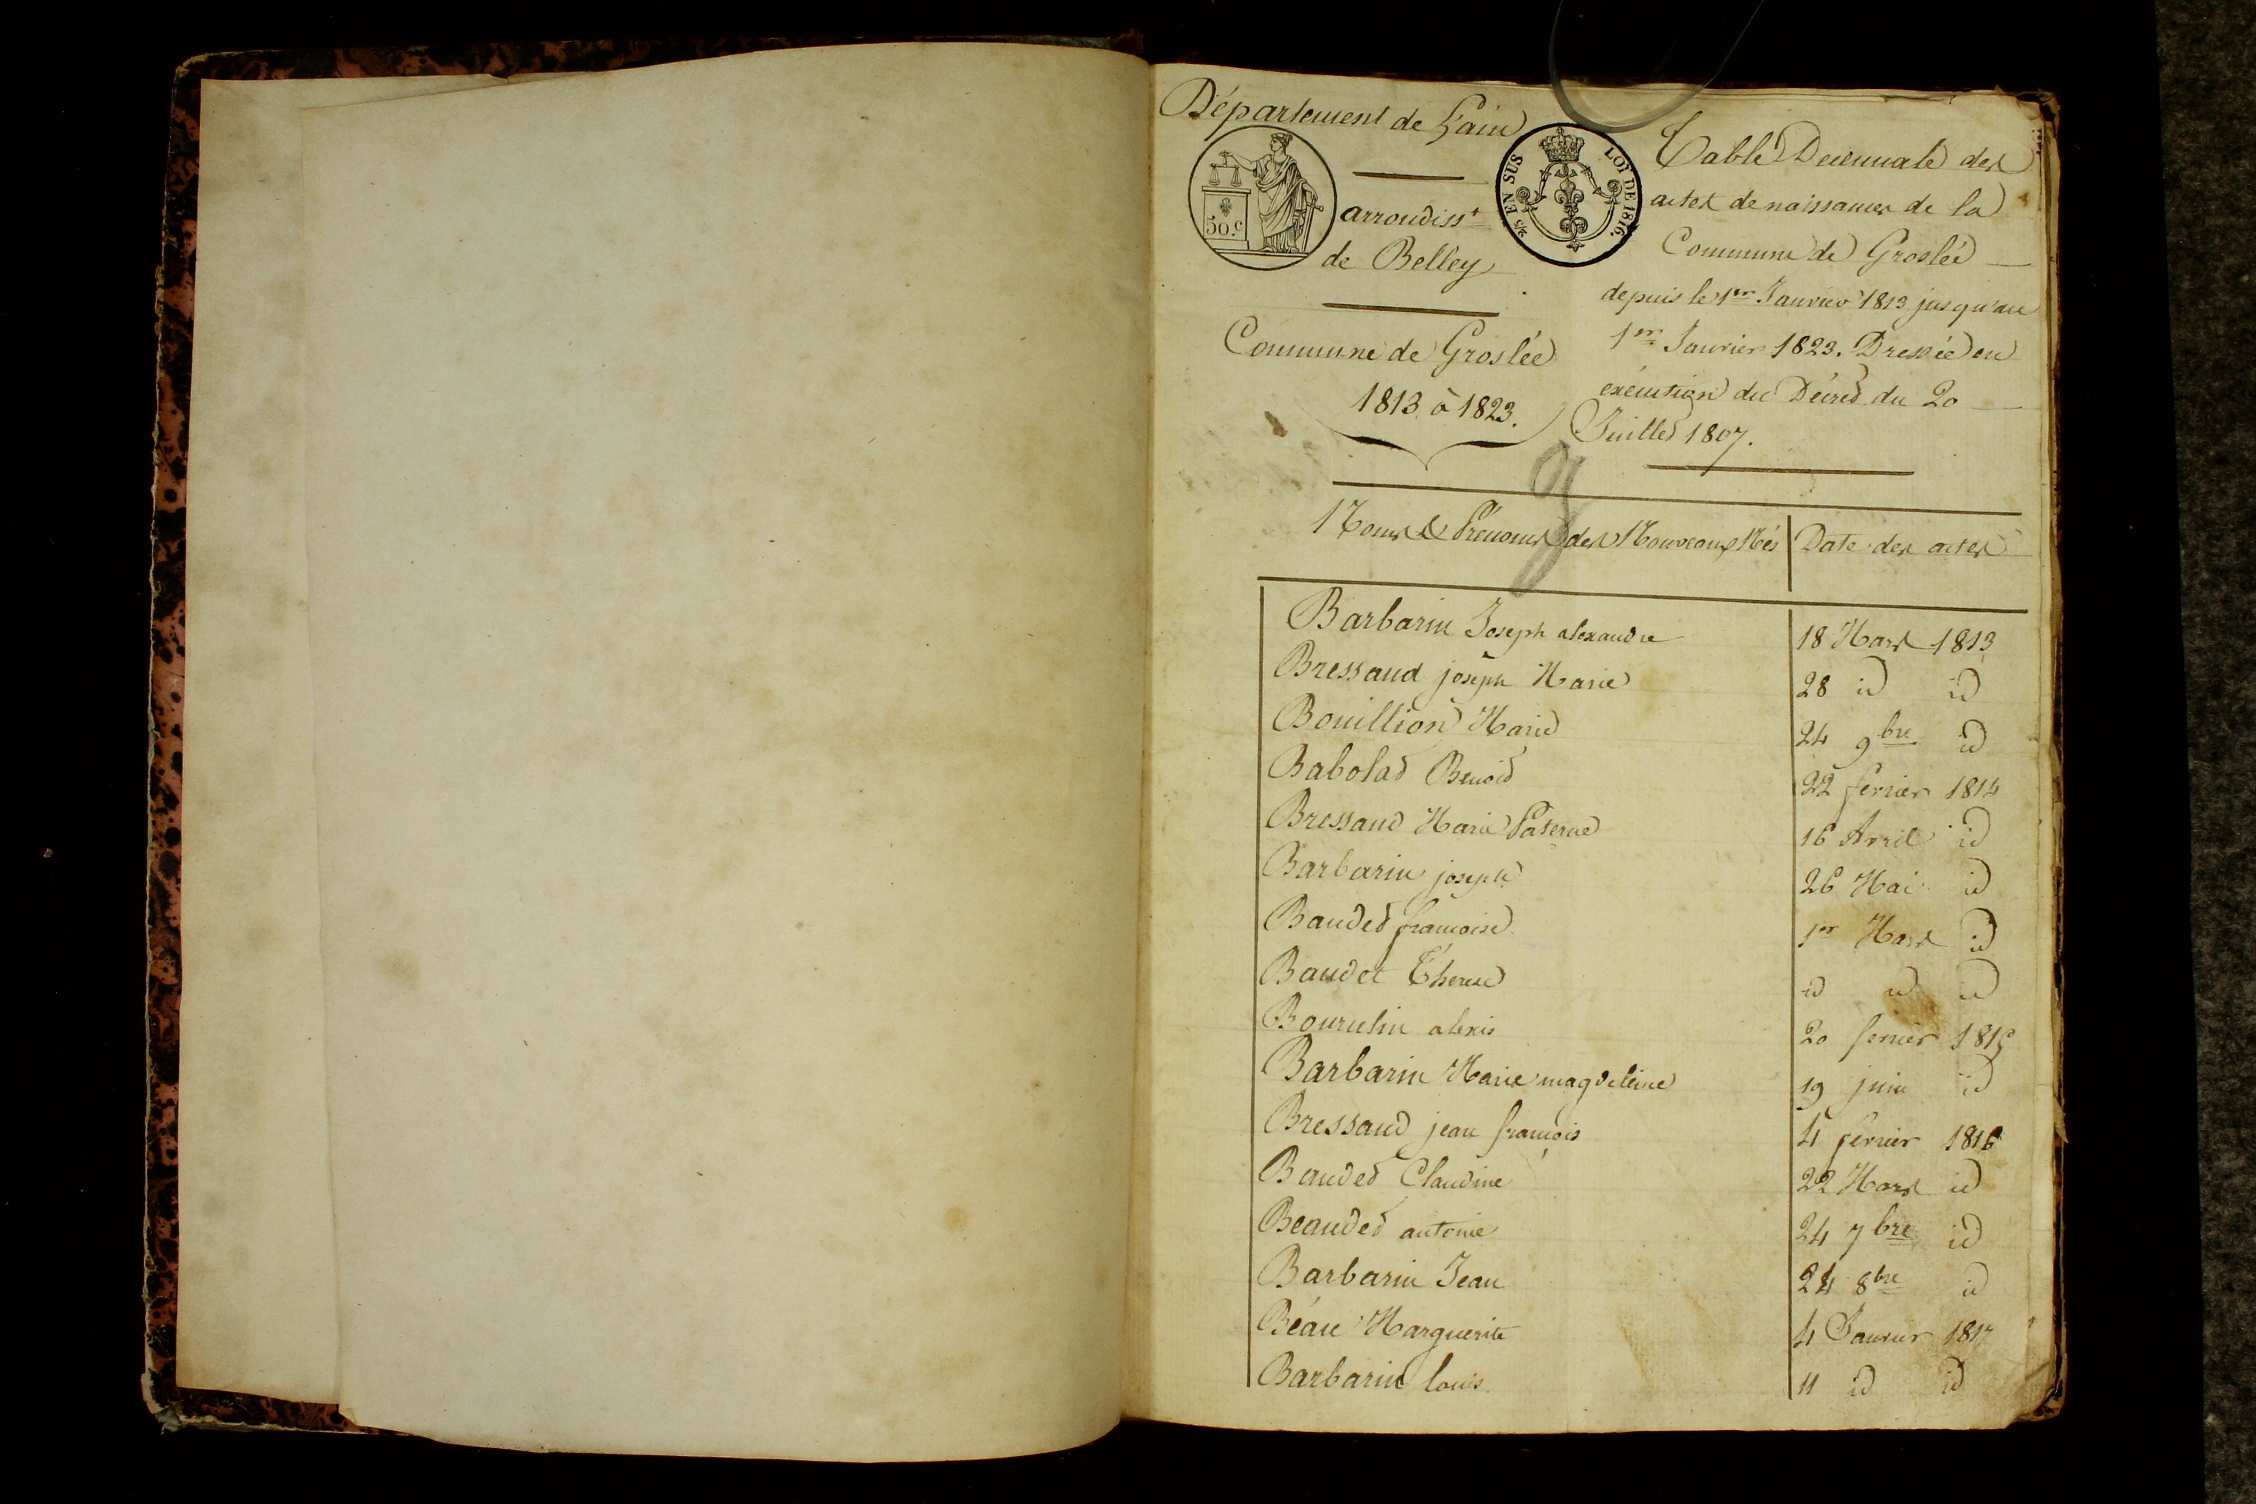 Département de L'ain
50.c
arrondisst
de Belley
2/5 EN SUS
LOI DE 1816.
Commune de Groslée
1813 à 1823.
Table Decennale des
actes de naissances de la
Commune de Groslée
depuis le 1er Janvier 1813 jusqu'au
1er Janvier 1823. Dressée en
exécution du Décret du 20
Juillet 1807.
Noms & Prénoms des Nouveaux Nés
Date des actes
Barbarin Joseph alexandre 18 Mars 1813
Bressaud joseph Marie 28 id id
Bouillion Marie 24 9bre id
Babolat Benoit 22 fevrier 1814
Bressaud Marie Paterne 16 Avril id
Barbarin joseph 26 Mai id
Baudet francoise 1er Mars id
Baudet Therese id id id
Bourulin alexis 20 fevrier 1815
Barbarin Marie magdeleine 19 juin id
Bressaud jean françois 4 fevrier 1816
Baudet Claudine 22 Mars id
Beaudet antoine 24 7bre id
Barbarin Jean 24 8bre id
Béau Marguerite 4 Janvier 1817
Barbarin louis 11 id id